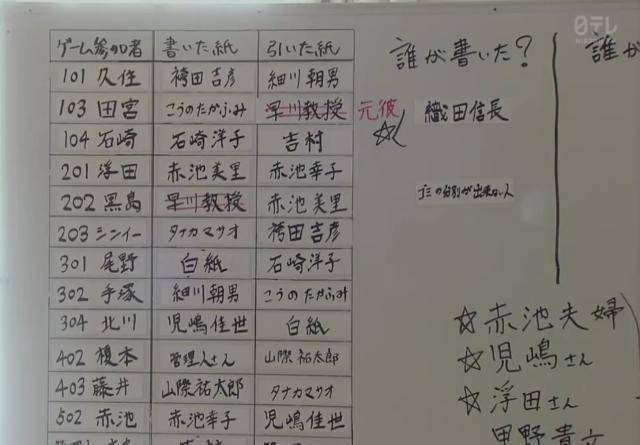 日テレ
ゲーム参加者 書いた紙 引いた紙
101 久住 袴田吉彦 細川朝男
103 田宮 こうのたかふみ 早川教授 元彼
104 石崎 石崎洋子 吉村
201 浮田 赤池美里 赤池幸子
202 黒島 早川教授 赤池美里
203 シンイー タナカマサオ 袴田吉彦
301 尾野 白紙 石崎洋子
302 手塚 細川朝男 こうのたかふみ
304 北川 児嶋佳世 白紙
402 榎本 管理人さん 山際祐太郎
403 藤井 山際祐太郎 タナカマサオ
502 赤池 赤池幸子 児嶋佳世
誰が書いた?
織田信長
ゴミの分別が出来ない人
☆赤池夫婦
☆児嶋さん
☆浮田さん
甲野貴文
誰が